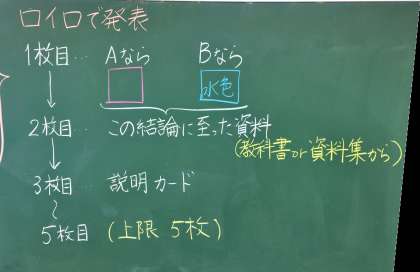 ロイロで発表
1枚目… Aなら Bなら
水色
↓
2枚目… この結論に至った資料
(教科書or資料集から)
↓
3枚目… 説明カード
〜
5枚目 (上限 5枚)